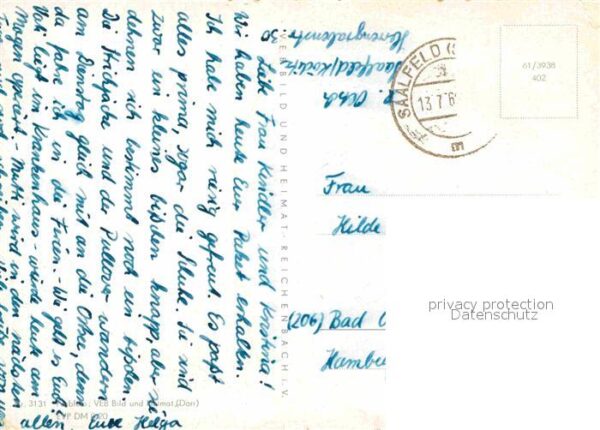 Liebe Frau Kindler und Kristina!
Wir haben heute Euer Paket erhalten.
Ich habe mich riesig gefreut. Es paßt
alles prima, sogar die Schuhe. Sie sind
zwar ein kleines bißchen knapp, aber sie
dehnen sich bestimmt noch ein bißchen.
Die Strickjacke und der Pullover wandern
am Dienstag gleich mit an die Ostsee, denn
da fahre ich in die Ferien. Wie geht es Euch?
Vati liegt im Krankenhaus - wurde heute am
Magen operiert - Mutti wird in den nächsten
allen. Eure Helga
VEB BILD UND HEIMAT · REICHENBACH I. V.
3131
VEB Bild und Heimat (Dorr)
EVP DM 0,20
Saalfeld/
30
SAALFELD (
13.7.6
61/3938
402
Frau
Hilde
(206) Bad
Hambu
privacy protection
Datenschutz